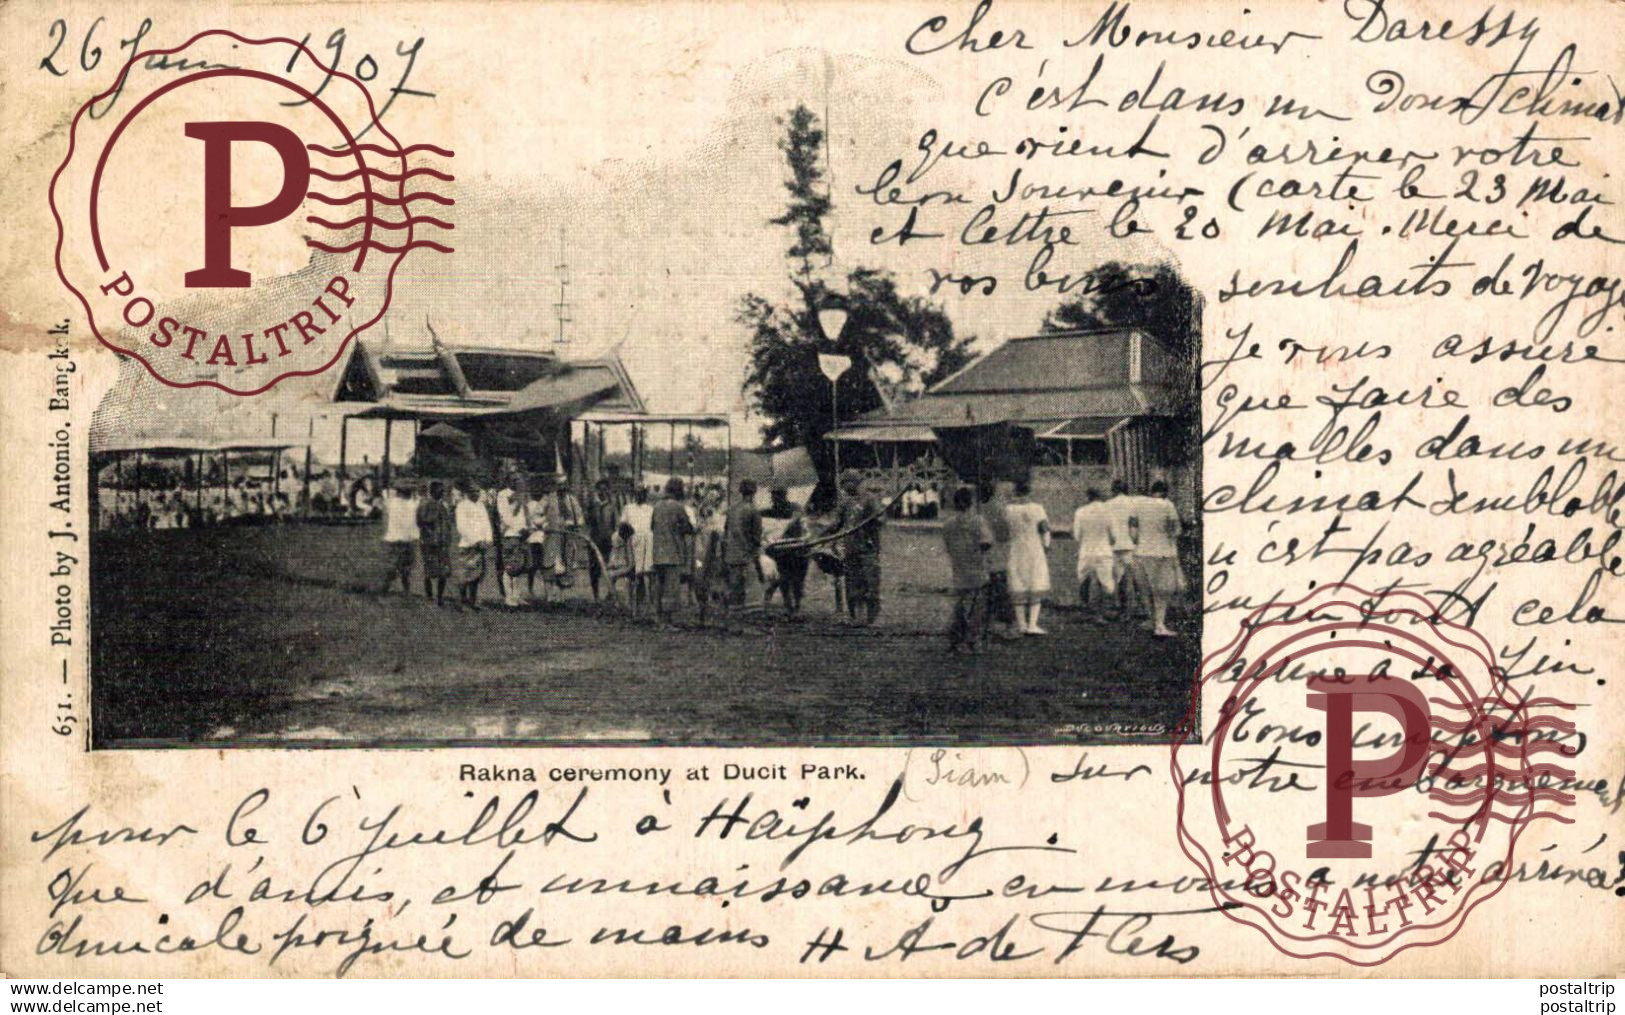 26 Juin 1907
Cher Monsieur Daressy
c'est dans un doux climat
que vient d'arriver votre
bon Souvenir (carte le 23 Mai
et lettre le 20 Mai. Merci de
vos bons souhaits de voyage
Je vous assure
que faire des
malles dans un
climat semblable
n'est pas agréable
Enfin tout cela
arrive à sa fin.
Nous comptons
Rakna ceremony at Ducit Park. (Siam) sur notre embarquement
pour le 6 Juillet à Haïphong.
Que d'amis, et connaissances en moins à notre arrivée?
Amicale poignée de mains H A de Flers
651. — Photo by J. Antonio, Bangkok.
POSTALTRIP
POSTALTRIP
delcampe.net
postaltrip
delcampe.net
postaltrip